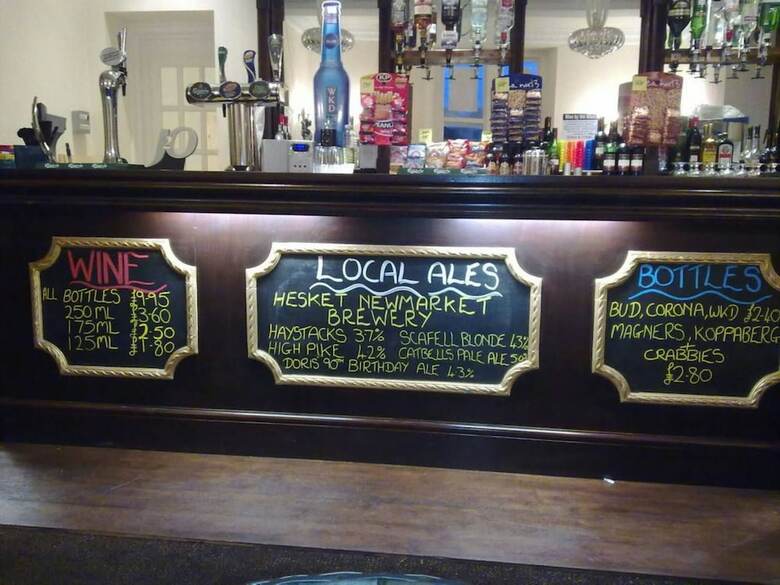 WKD
KP
WINE
ALL BOTTLES £9.95
250 ML £3.60
175 ML £2.50
125 ML £1.80
LOCAL ALES
HESKET NEWMARKET
BREWERY
HAYSTACKS 3.7% SCAFELL BLONDE 4.3%
HIGH PIKE 4.2% CATBELLS PALE ALE 5.0%
DORIS 90TH BIRTHDAY ALE 4.3%
BOTTLES
BUD, CORONA, WKD £2.40
MAGNERS, KOPPABERG
CRABBIES
£2.80